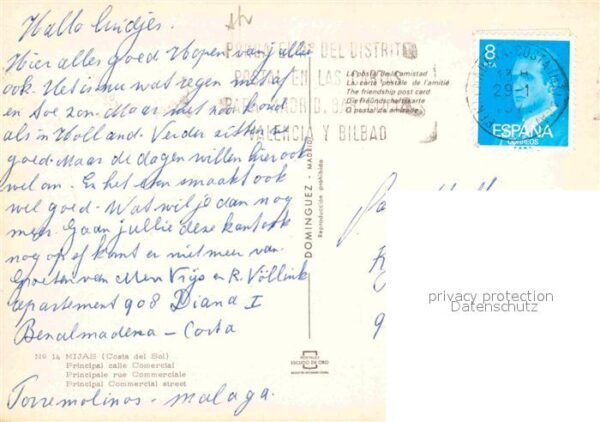 Hallo luidjes.
Hier alles goed Hopen van jullie
ook. Het is nu wat regen met af
en toe zon. Maar niet zo koud
als in Holland. Verder
goed. Maar de dagen willen hier ook
wel om. En het eten smaakt ook
wel goed. Wat wil je dan nog
meer. Gaan jullie deze kant ook
nog op of komt er niet meer van
Groeten van Mevr Vrijs en R. Völlink
apartement 908 Diana I
Benalmadena - Costa
Nº 14 MIJAS (Costa del Sol)
Principal calle Comercial
Principale rue Commerciale
Principal Commercial street
Torremolinos - Malaga.
DEL DISTRITO
POSTAL EN LAS
PARA MADRID, BARCELONA
VALENCIA Y BILBAO
La postal de la amistad
La carte postale de l'amitié
The friendship post card
Die Freundschaftskarte
O postal da amizade
DOMINGUEZ - MADRID
Reproducción prohibida
POSTALES
ESCUDO DE ORO
8
PTA
ESPAÑA
CORREOS
COSTA
13 H
29-1
privacy protection
Datenschutz
9